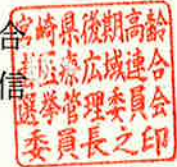 宮崎県後期高齢
者医療広域連合
選挙管理委員会
委員長之印
合
信